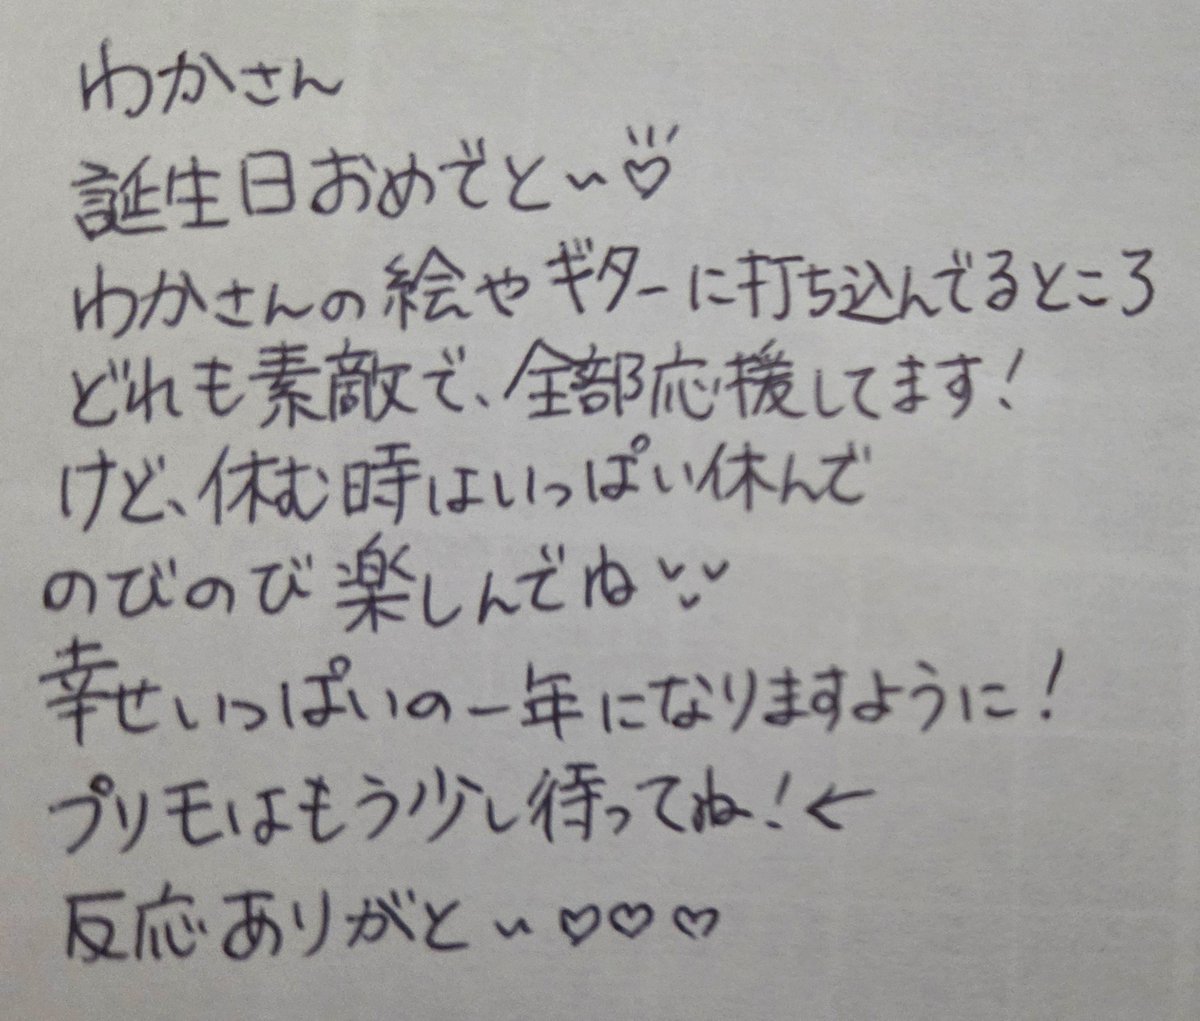 わかさん
誕生日おめでと～♡
わかさんの絵やギターに打ち込んでるところ
どれも素敵で、全部応援してます!
けど、休む時はいっぱい休んで
のびのび楽しんでね
幸せいっぱいの一年になりますように!
プリモはもう少し待ってね!←
反応ありがと～♡♡♡